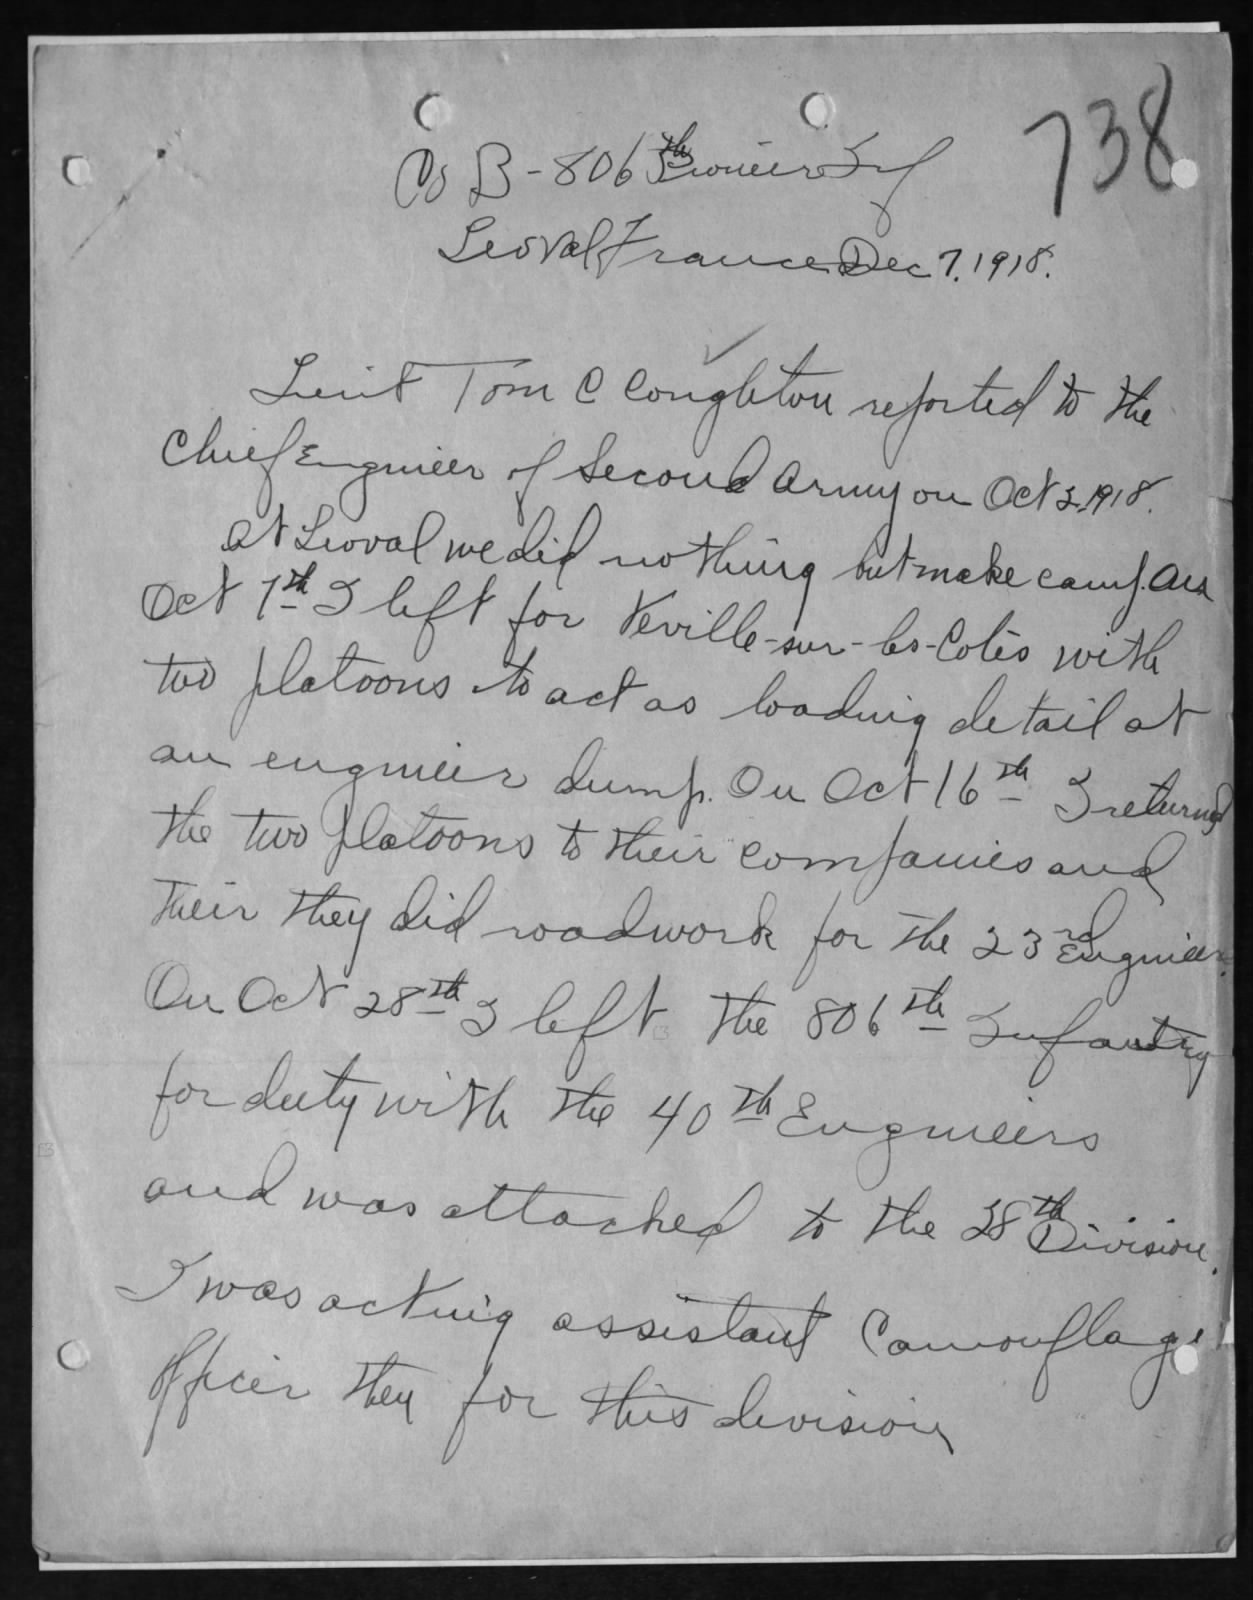 738
Co B - 806th Pioneer Inf
Lioval France Dec 7. 1918.
Lieut Tom C Congleton reported to the
Chief Engineer of Second Army on Oct 2, 1918.
At Lioval we did nothing but make camp. On
Oct 7th I left for Veville-sur-les-Cotes with
two platoons to act as loading detail at
an engineer dump. On Oct 16th I returned
the two platoons to their companies and
their they did roadwork for the 23rd Engineers.
On Oct 28th I left the 806th Infantry
for duty with the 40th Engineers
and was attached to the 28th Division.
I was acting assistant Camouflage
Officer then for this division